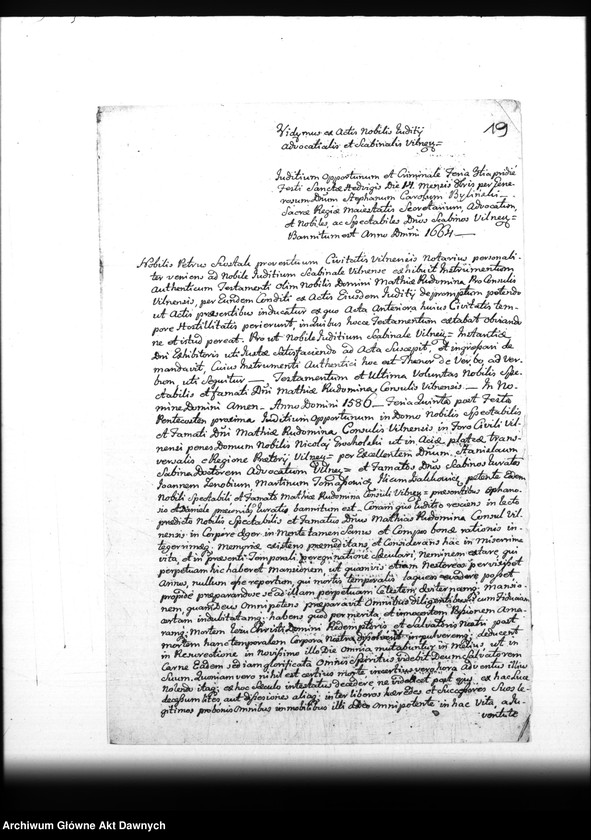 19
Vidymus ex Actis Nobilis Iuditij
Advocatialis et Scabinalis Vilney=
Iuditium Opportunum et Criminale Feria pridie
Festi Sanctæ Hedvigis Die 14 Mensis per Gene
rosum Dnum Stephanum Carolum Bylinski
Sacræ Regiæ Maiestatis Secretarium Advocatum
et Nobiles, ac Spectabiles Dnos Scabinos Vilney=
Bannitum est Anno Dmni 1664
Nobilis Petrus proventuum Civitatis Vilnensis Notarius personali-
ter veniens ad Nobile Iuditium Scabinale Vilnense exhibuit Instrumentum
Authenticum Testamenti olim Nobilis Domini Mathiæ Rudomina Pro Consulis
Vilnensis, per Eundem Conditi ex Actis Eiusdem Iuditij depromptum petendo
ut Actis præsentibus inducatur ex quo Acta Anteriora huius Civitatis tem-
pore Hostilitatis perierunt, in quibus hocce Testamentum extabat obviando
ne et istud pereat. Pro ut Nobile Iuditium Scabinale Vilney= Instantiæ
Dni Exhibitoris uti Iustæ Satisfaciendo ad Acta Suscepit, et ingrossari de
mandavit, Cuius Instrumenti Authentici hoc est Thenor de Verbo ad Ver-
bum, uti Sequitur. Testamentum et Ultima Voluntas Nobilis Spe-
ctabilis et famati Dni Mathiæ Rudomina Consulis Vilnensis. In No-
mine Domini Amen. Anno Domini 1586 Feria Quinta post Festa
Pentecosten proxima Iuditium Opportunum in Domo Nobilis Spectabilis
et Famati Dni Mathiæ Rudomina Consulis Vilnensis in Foro Civili Vil-
nensi penes Domum Nobilis Nicolaj ut in Acie plateæ trans-
versalis e Regione Prætorij Vilney= per Excellentem Dnum Stanislaum
Sabina Doctorem Advocatum Vilney= et Famatos Dnos Scabinos Iuratos
Ioannem Zenobium Martinum petente Eodem
Nobili Spectabili et Famato Mathia Rudomina Consuli Vilney= præsentibus Ophana-
sio et Daniele Iuratis bannitum est. Coram quo Iuditio iacens in lecto
prædicto Nobilis Spectabilis et Famatus Dnus Mathias Rudomina Consul Vil-
nensis in Corpore Æger in Mente tamen Sanus et Compos bonæ rationis in-
tegerrimæq memoriæ existens præmeditans et Considerans hac in Miserrima
vita, et in præsenti Temporali peregrinatione Seculari Neminem extare qui
perpetuam hic haberet Mansionem, ut quamvis etiam Nestoreos pervixisset
Annos, nullum esse repertum qui mortis temporalis laqueum evadere posset
proinde præparandus se ad illam perpetuam Cælestem, et æternamq Mansio-
nem quam Deus Omnipotens præparavit Omnibus diligentibus se cum Fiducia
certam indubitatamq habens quod per merita, et innocentem Passionem Ama-
ramq Mortem Iesu Christi Domini Redemptoris et Salvatoris Nostri post
mortem hanc temporalem Corpora Nostra in pulverem, deducent
in Resurrectione in Novissimo illo Die Omnia mutabuntur in Melius, ut in
Carne Eadem sed iam glorificata Omnis Spiritus videbit Deum Salvatorem
Suum. Quoniam vero nihil est certius morte incertius vero hora adventus illius
Nolendo itaq ex hoc Sæculo intestatus decedere, ne videlicet post eius ex hac luce
decessum lites aut dissensiones aliaq inter liberos hæredes et Successores Suos le-
gitimos pro bonis Omnibus immobilibus illi a Deo Omnipotente in hac Vita, adiu-
vante
Archiwum Główne Akt Dawnych